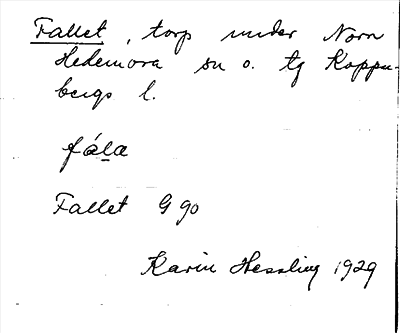 Fallet, torp under Norn
Hedemora sn o. tg Koppar-
bergs l.
fála
Fallet G 90
Karin Hessling 1929